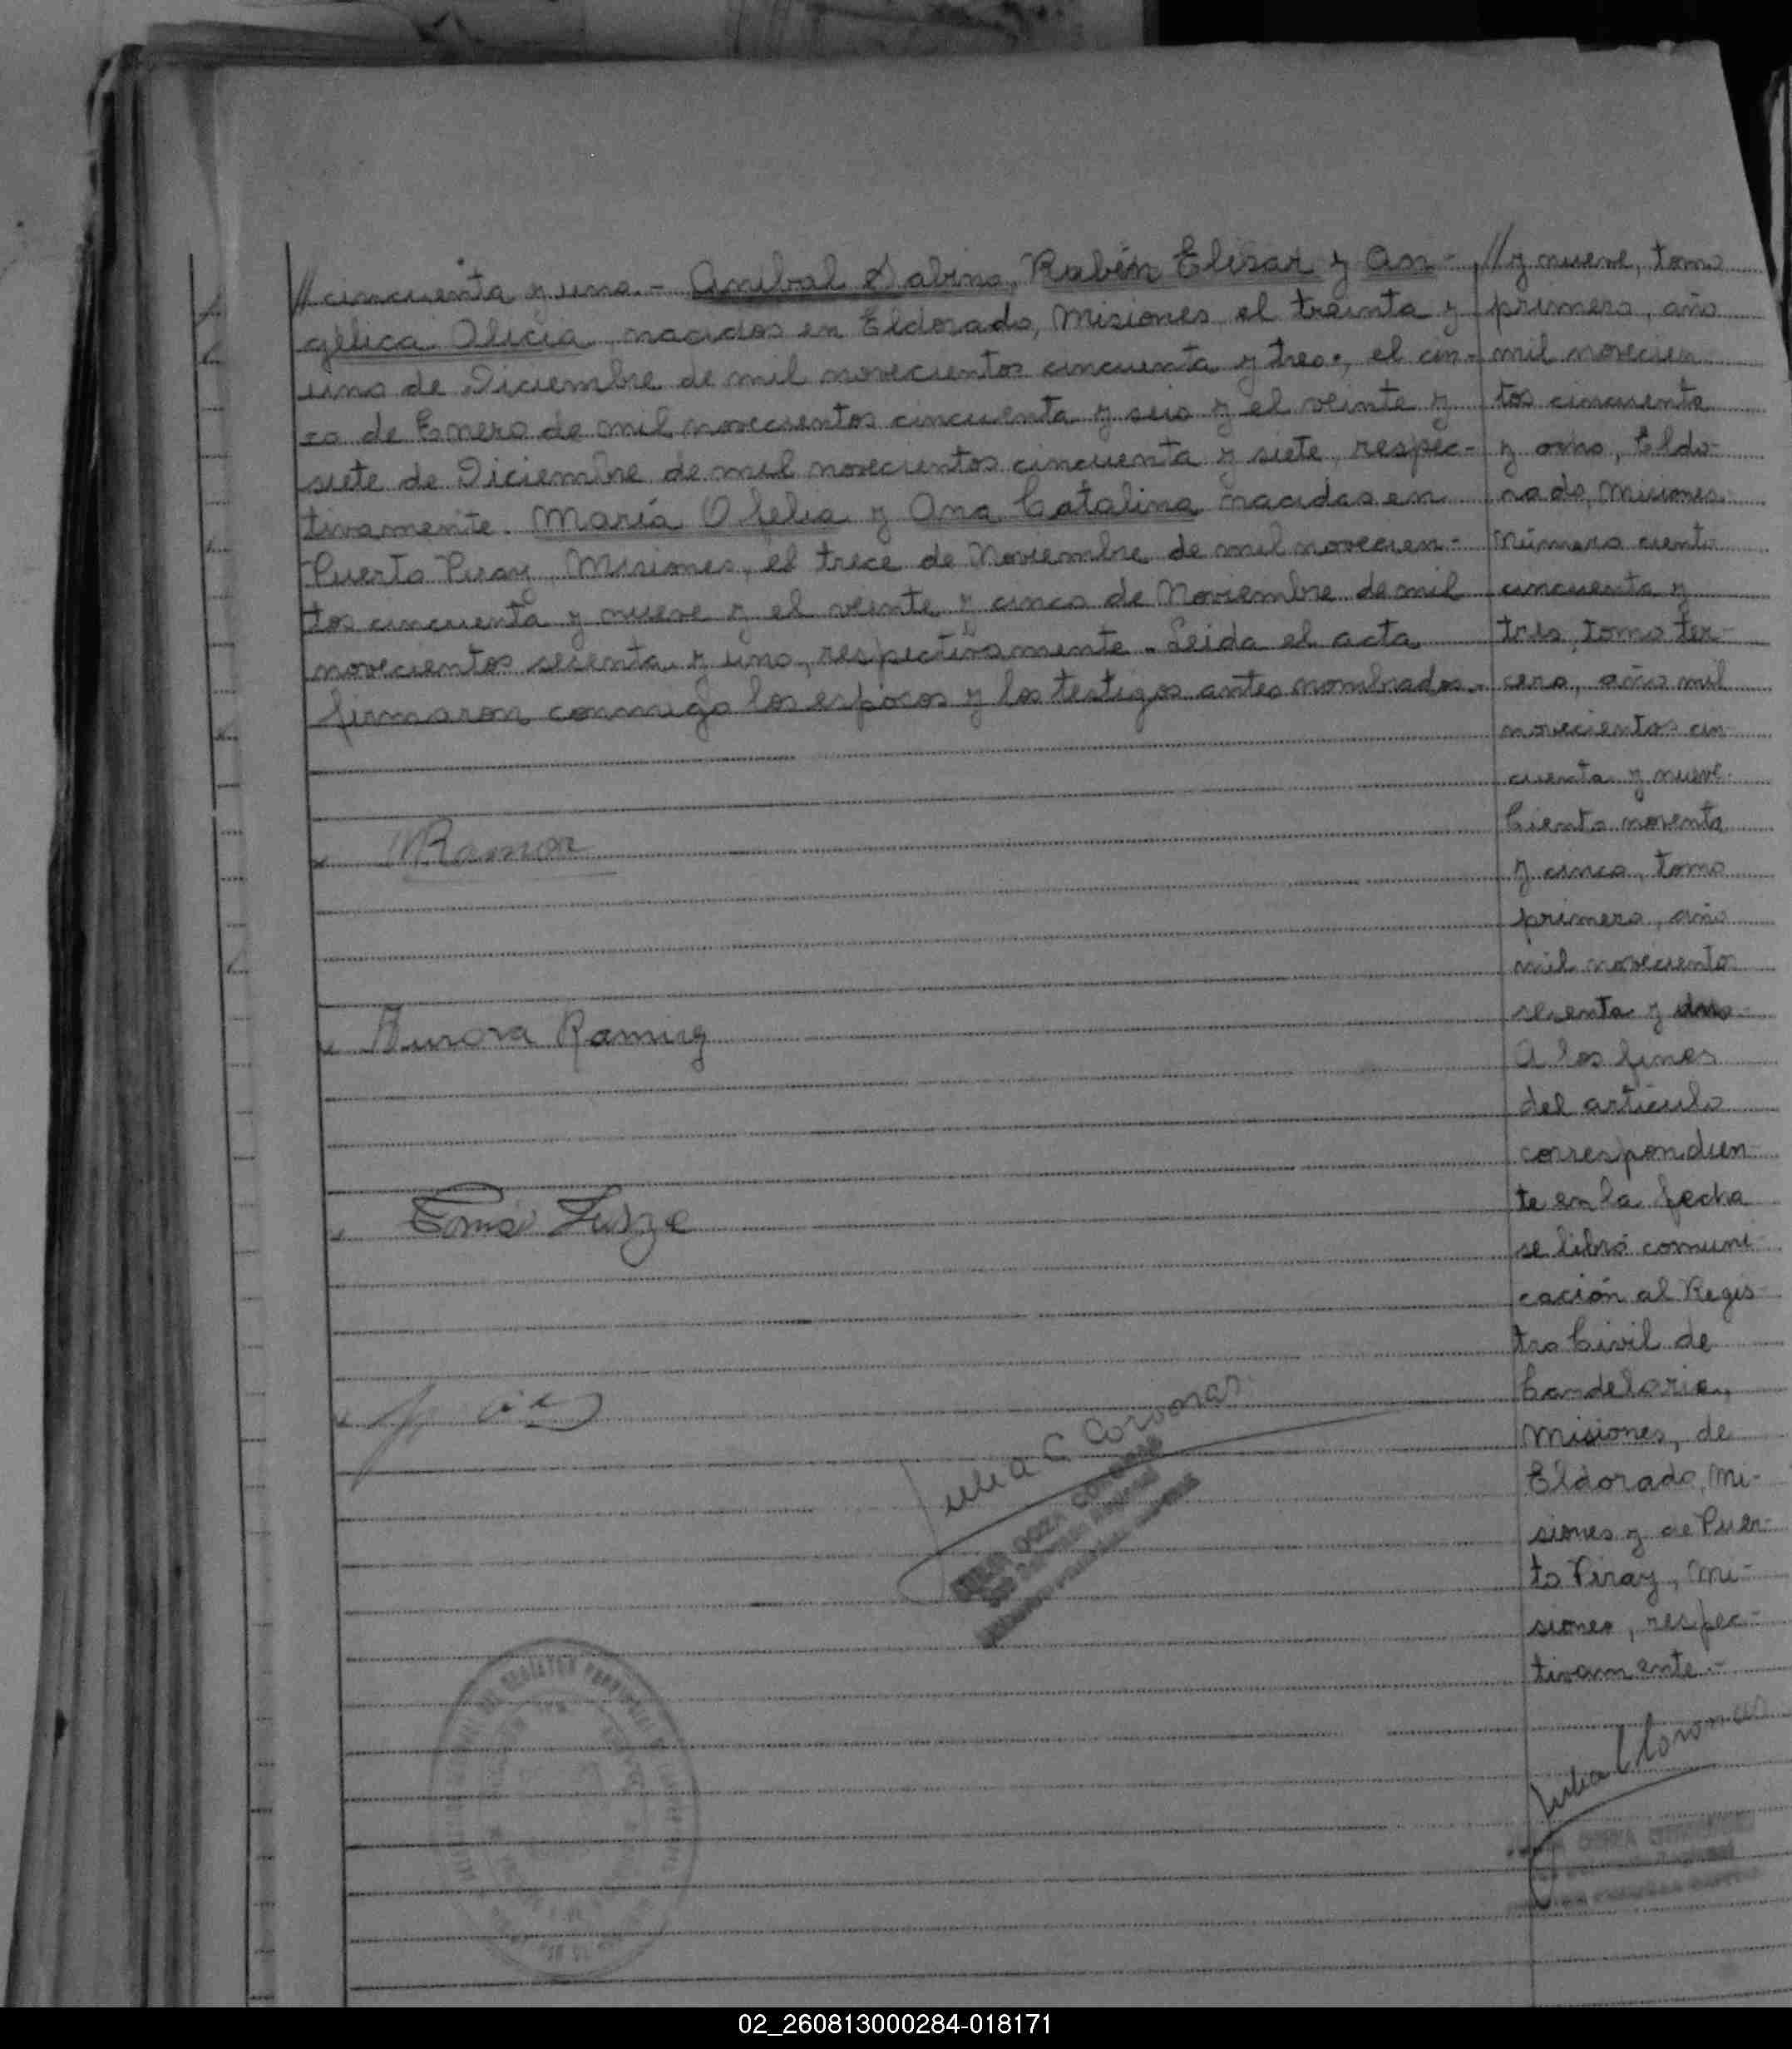 // cincuenta y uno. - Anibal Sabino, Rubén Elisar y An-
gélica Alicia, nacidos en Eldorado, Misiones, el treinta y
uno de Diciembre de mil novecientos cincuenta y tres, el cin-
co de Enero de mil novecientos cincuenta y seis y el veinte y
siete de Diciembre de mil novecientos cincuenta y siete, respec-
tivamente. María Ofelia y Ana Catalina nacidas en
Puerto Piray, Misiones, el trece de Noviembre de mil novecien-
tos cincuenta y nueve y el veinte y cinco de Noviembre de mil
novecientos sesenta y uno, respectivamente. Leida el acta
firmaron conmigo los esposos y los testigos antes nombrados.-
Aurora Ramirez
Julia C Coronas
// y nueve, tomo
primero, año
mil novecien
tos cincuenta
y ocho, Eldo-
rado, Misiones.
Número ciento
cincuenta y
tres, tomo ter-
cero, año mil
novecientos cin
cuenta y nueve.
Ciento noventa
y cinco, tomo
primero, año
mil novecientos
sesenta y uno-
A los fines
del artículo
correspondien
te en la fecha
se libró comuni
cación al Regis
tro Civil de
Candelaria,
Misiones, de
Eldorado, Mi-
siones y de Puer-
to Piray, Mi-
siones, respec-
tivamente.-
Julia C Coronas
02_260813000284-018171